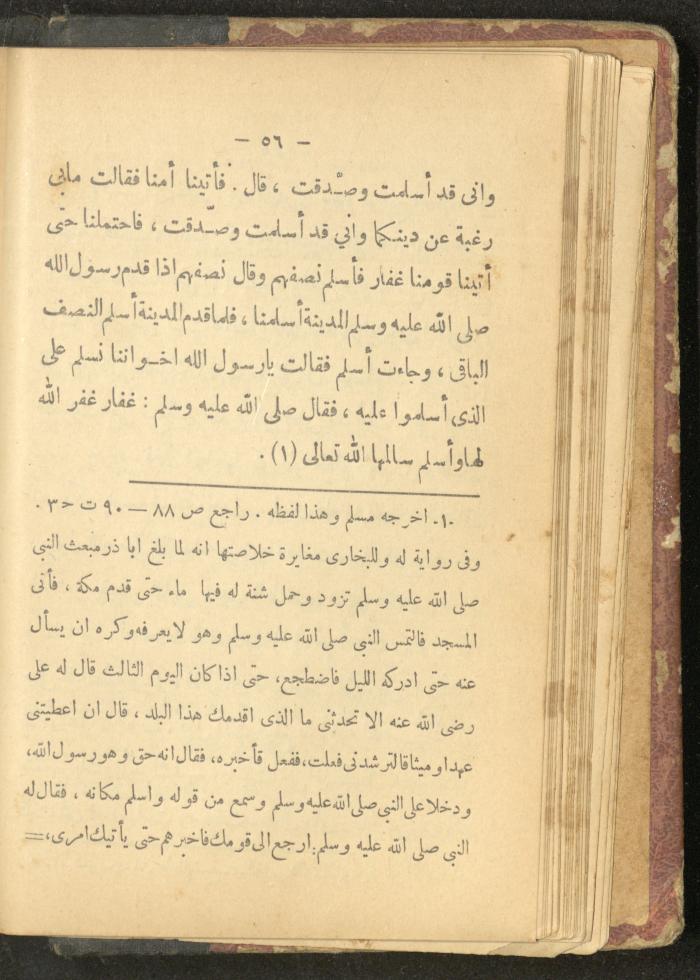 — ٥٦ —
وانى قد أسلمت وصـدّقت ، قال . فأتينا أمنا فقالت مابي
رغبة عن دينكما واني قد أسلمت وصـدّقت ، فاحتملنا حتى
أتينا قومنا غفار فأسلم نصفهم وقال نصفهم اذا قدم رسول الله
صلى الله عليه وسلم المدينة أسلمنا ، فلما قدم المدينة أسلم النصف
الباقى ، وجاءت أسلم فقالت يارسول الله اخـواننا نسلم على
الذى أسلموا عليه ، فقال صلى الله عليه وسلم : غفار غفر الله
لها وأسلم سالمها الله تعالى (١) .
.١. اخرجه مسلم وهذا لفظه . راجع ص ٨٨ — ٩٠ ت ح ٣ .
وفى رواية له وللبخارى مغايرة خلاصتها انه لما بلغ ابا ذر مبعث النبى
صلى الله عليه وسلم تزود وحمل شنة له فيها ماء حتى قدم مكة ، فأتى
المسجد فالتمس النبى صلى الله عليه وسلم وهو لا يعرفه وكره ان يسأل
عنه حتى ادركه الليل فاضطجع، حتى اذا كان اليوم الثالث قال له على
رضى الله عنه الا تحدثنى ما الذى اقدمك هذا البلد ، قال ان اعطيتنى
عهدا وميثاقا لترشدنى فعلت، ففعل فأخبره، فقال انه حق وهو رسول الله،
ودخلا على النبى صلى الله عليه وسلم وسمع من قوله واسلم مكانه ، فقال له
النبى صلى الله عليه وسلم: ارجع الى قومك فاخبرهم حتى يأتيك امرى، =